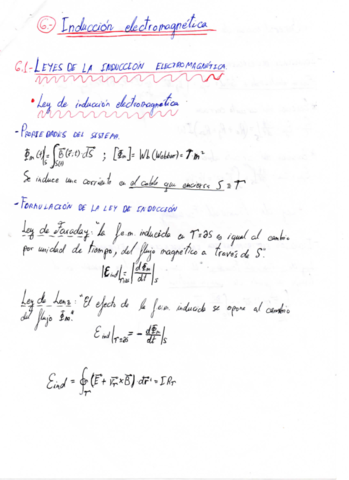 6.- Inducción electromagnética
6.1- LEYES DE LA INDUCCIÓN ELECTROMAGNÉTICA
• Ley de inducción electromagnética
-PROPIEDADES DEL SISTEMA.
Φm(t)|S = ∫S(t) B(r,t) dS ; [Φm] = Wb (Webber) = T m²
Se induce una corriente en el cable que encierra S ≡ T
-FORMULACIÓN DE LA LEY DE INDUCCIÓN
Ley de Faraday: "la f.e.m inducida en T=∂S es igual al cambio
por unidad de tiempo, del flujo magnético a través de S".
|Eind|T=∂S = |dΦm/dt|S
Ley de Lenz: "El efecto de la f.e.m inducida se opone al cambio
del flujo Φm".
Eind|T=∂S = - dΦm/dt|S
Eind = ∮T (E + vT × B) dr = I RT